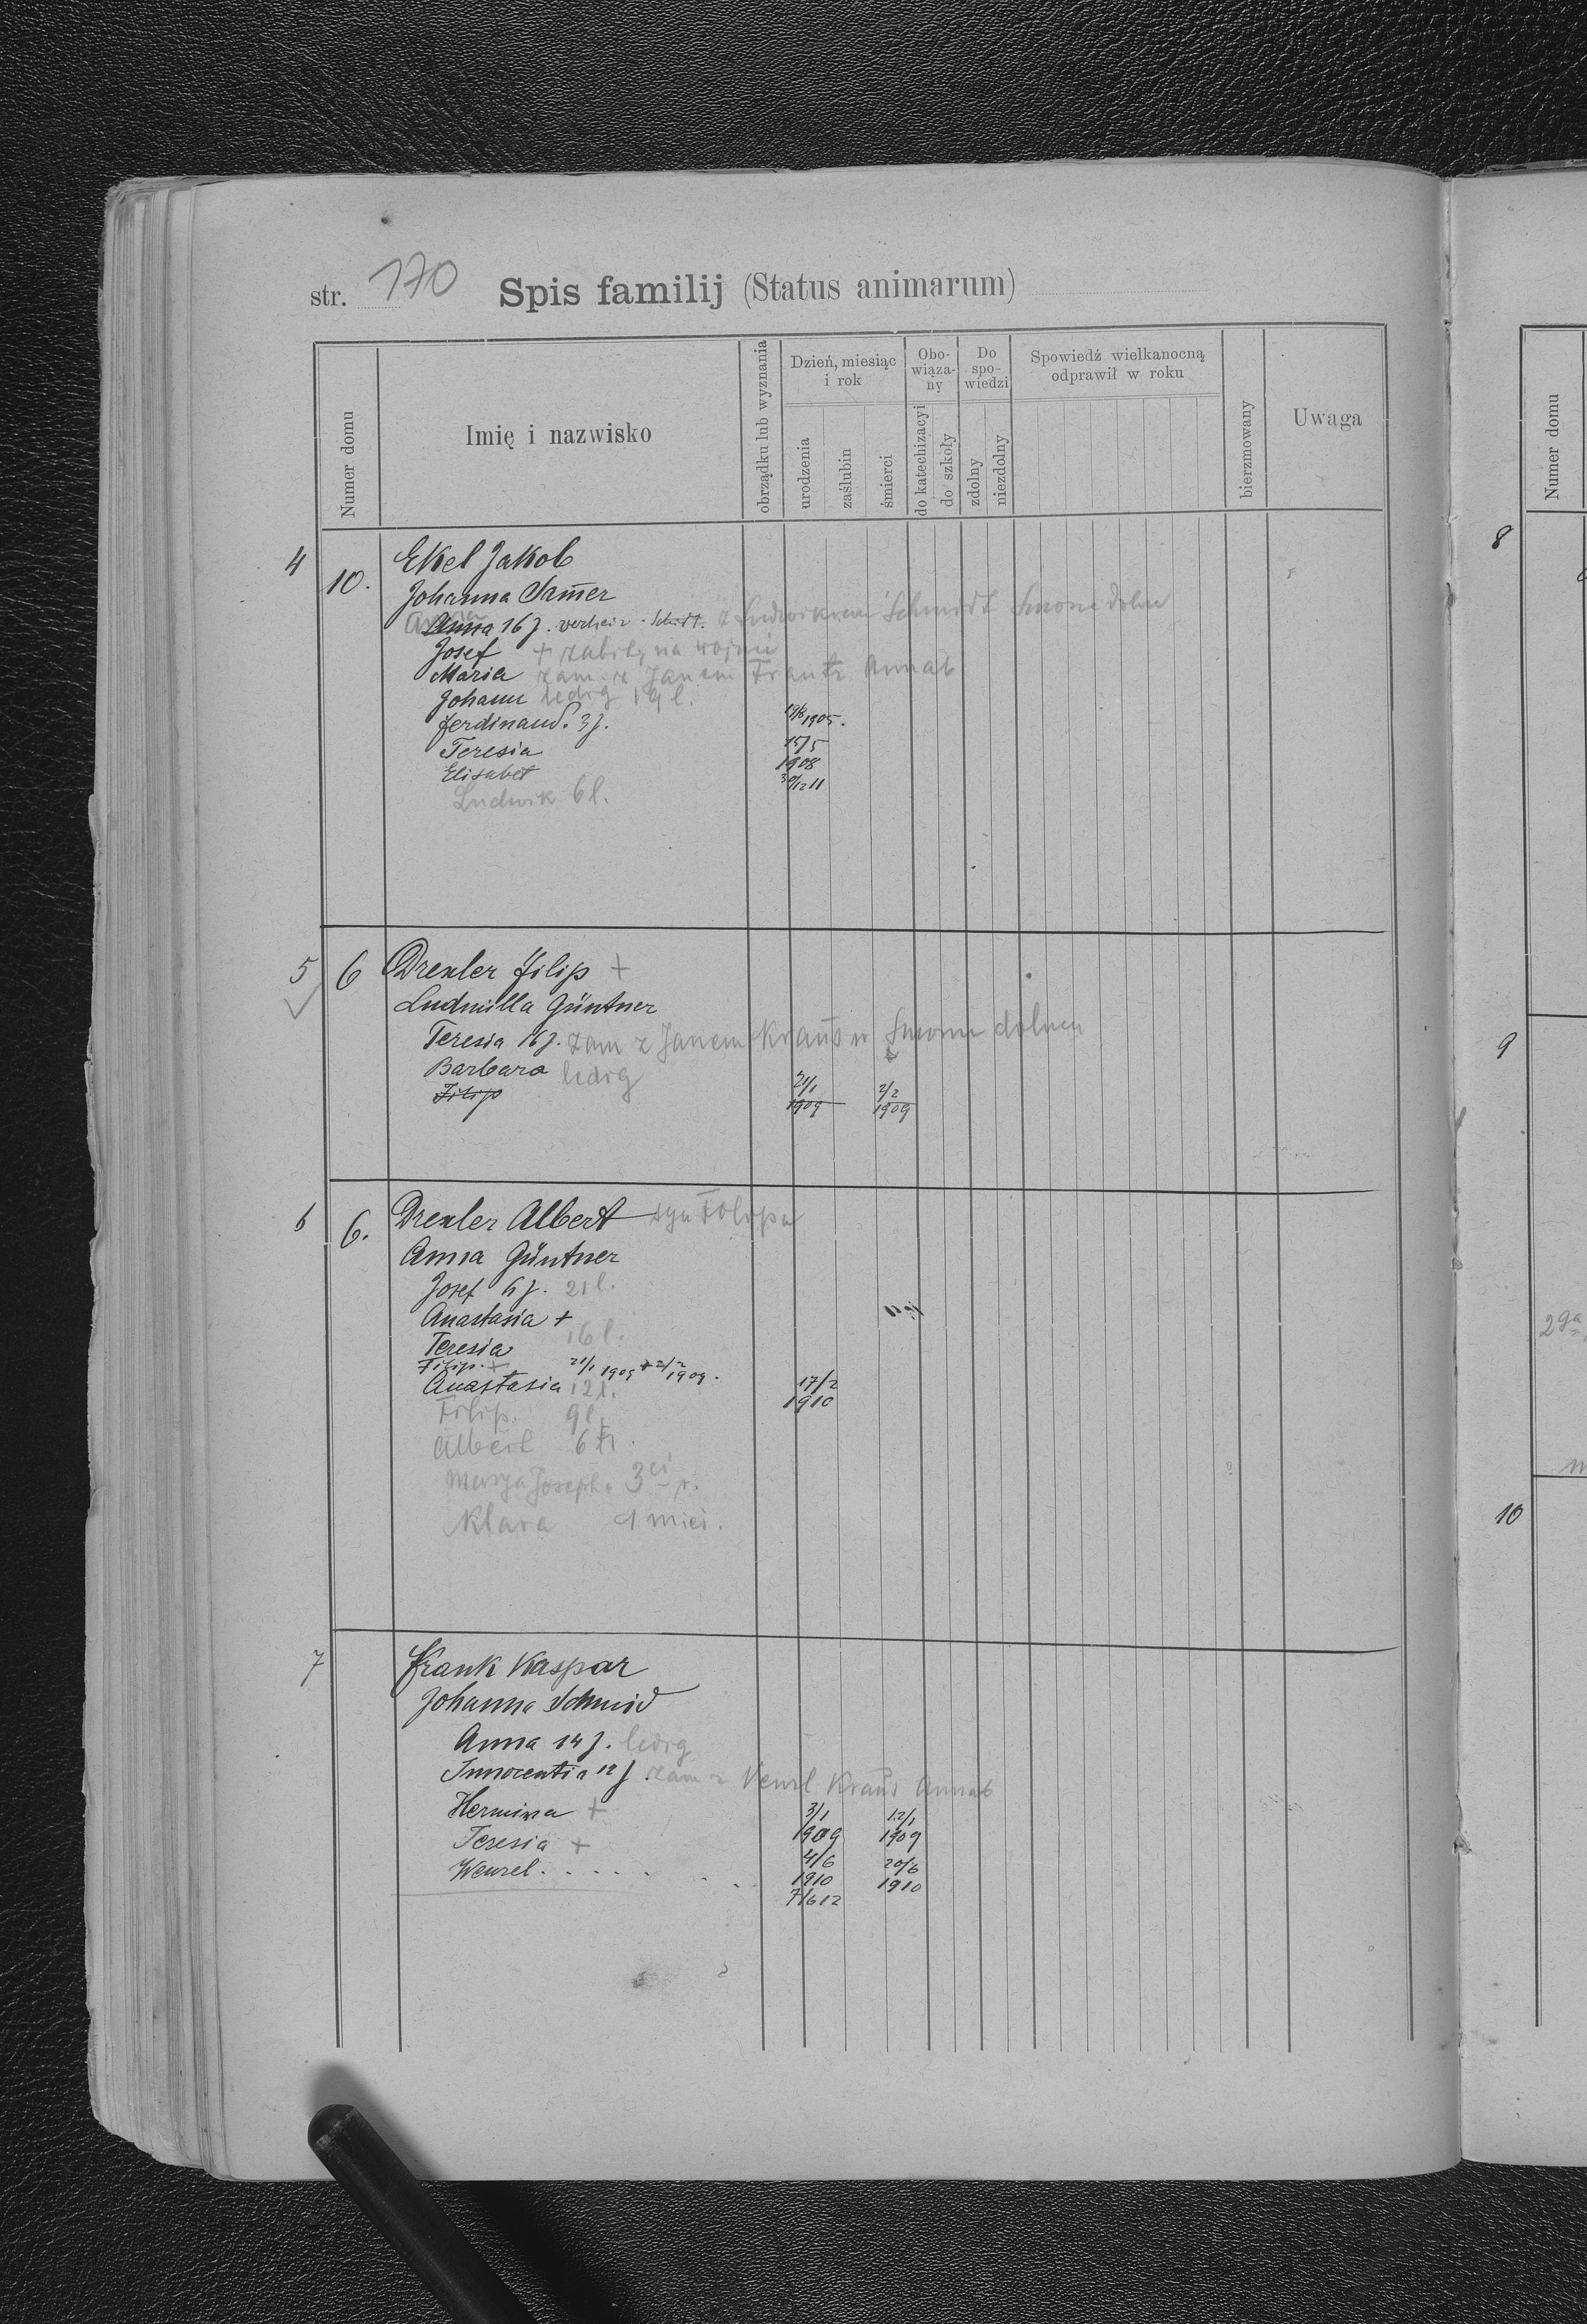 str. 170 Spis familij (Status animarum)
Numer domu
Imię i nazwisko
obrządku lub wyznania
Dzień, miesiąc i rok
urodzenia
zaślubin
śmierci
Obo-wiąza-ny
do katechizacyi
do szkoły
Do spo-wiedzi
zdolny
niezdolny
Spowiedź wielkanocną odprawił w roku
bierzmowany
Uwaga
4 10. Ekel Jakob
Johanna Sam̄er
Anna 16 j. z Ludwikiem Schmidt Smorze dolne
Josef + zabity na wojnie
Maria zam. z Janem Frantz Annab
Johann ledig 19 l.
Ferdinand. 3 j. 1905.
Teresia 15/5 1908
Elisabet 30/12 11
Ludwik 6 l.
5 6 Drexler Filip +
Ludmilla Güntner
Teresia 16 j. zam z Janem Kraus w Smorzu dolnem
Barbara ledig
Filip 21/1 1909 2/2 1909
6 6. Drexler Albert syn Filipa
Anna Güntner
Josef 6 j. 21 l.
Anastasia +
Teresia 16 l.
Filip. + 21/1 1909 + 2/2 1909.
Anastasia 12 l. 17/2 1910
Filip. 9 l.
Albert 6 l.
Marya Josepha 3
Klara 1 mies.
7 Frank Kaspar
Johanna Schmid
Anna 14 j. ledig
Innocentia 12 j. zam z Venzl Kraus Annab
Hermina + 3/1 1909 12/1 1909
Teresia + 4/6 1910 20/6 1910
Wenzel. . . . . . 7/6 12
Numer domu
8
9
10